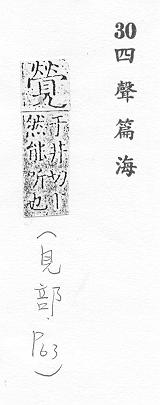 30四聲篇海
覮
于井切
然能听也
(見部. P.63)